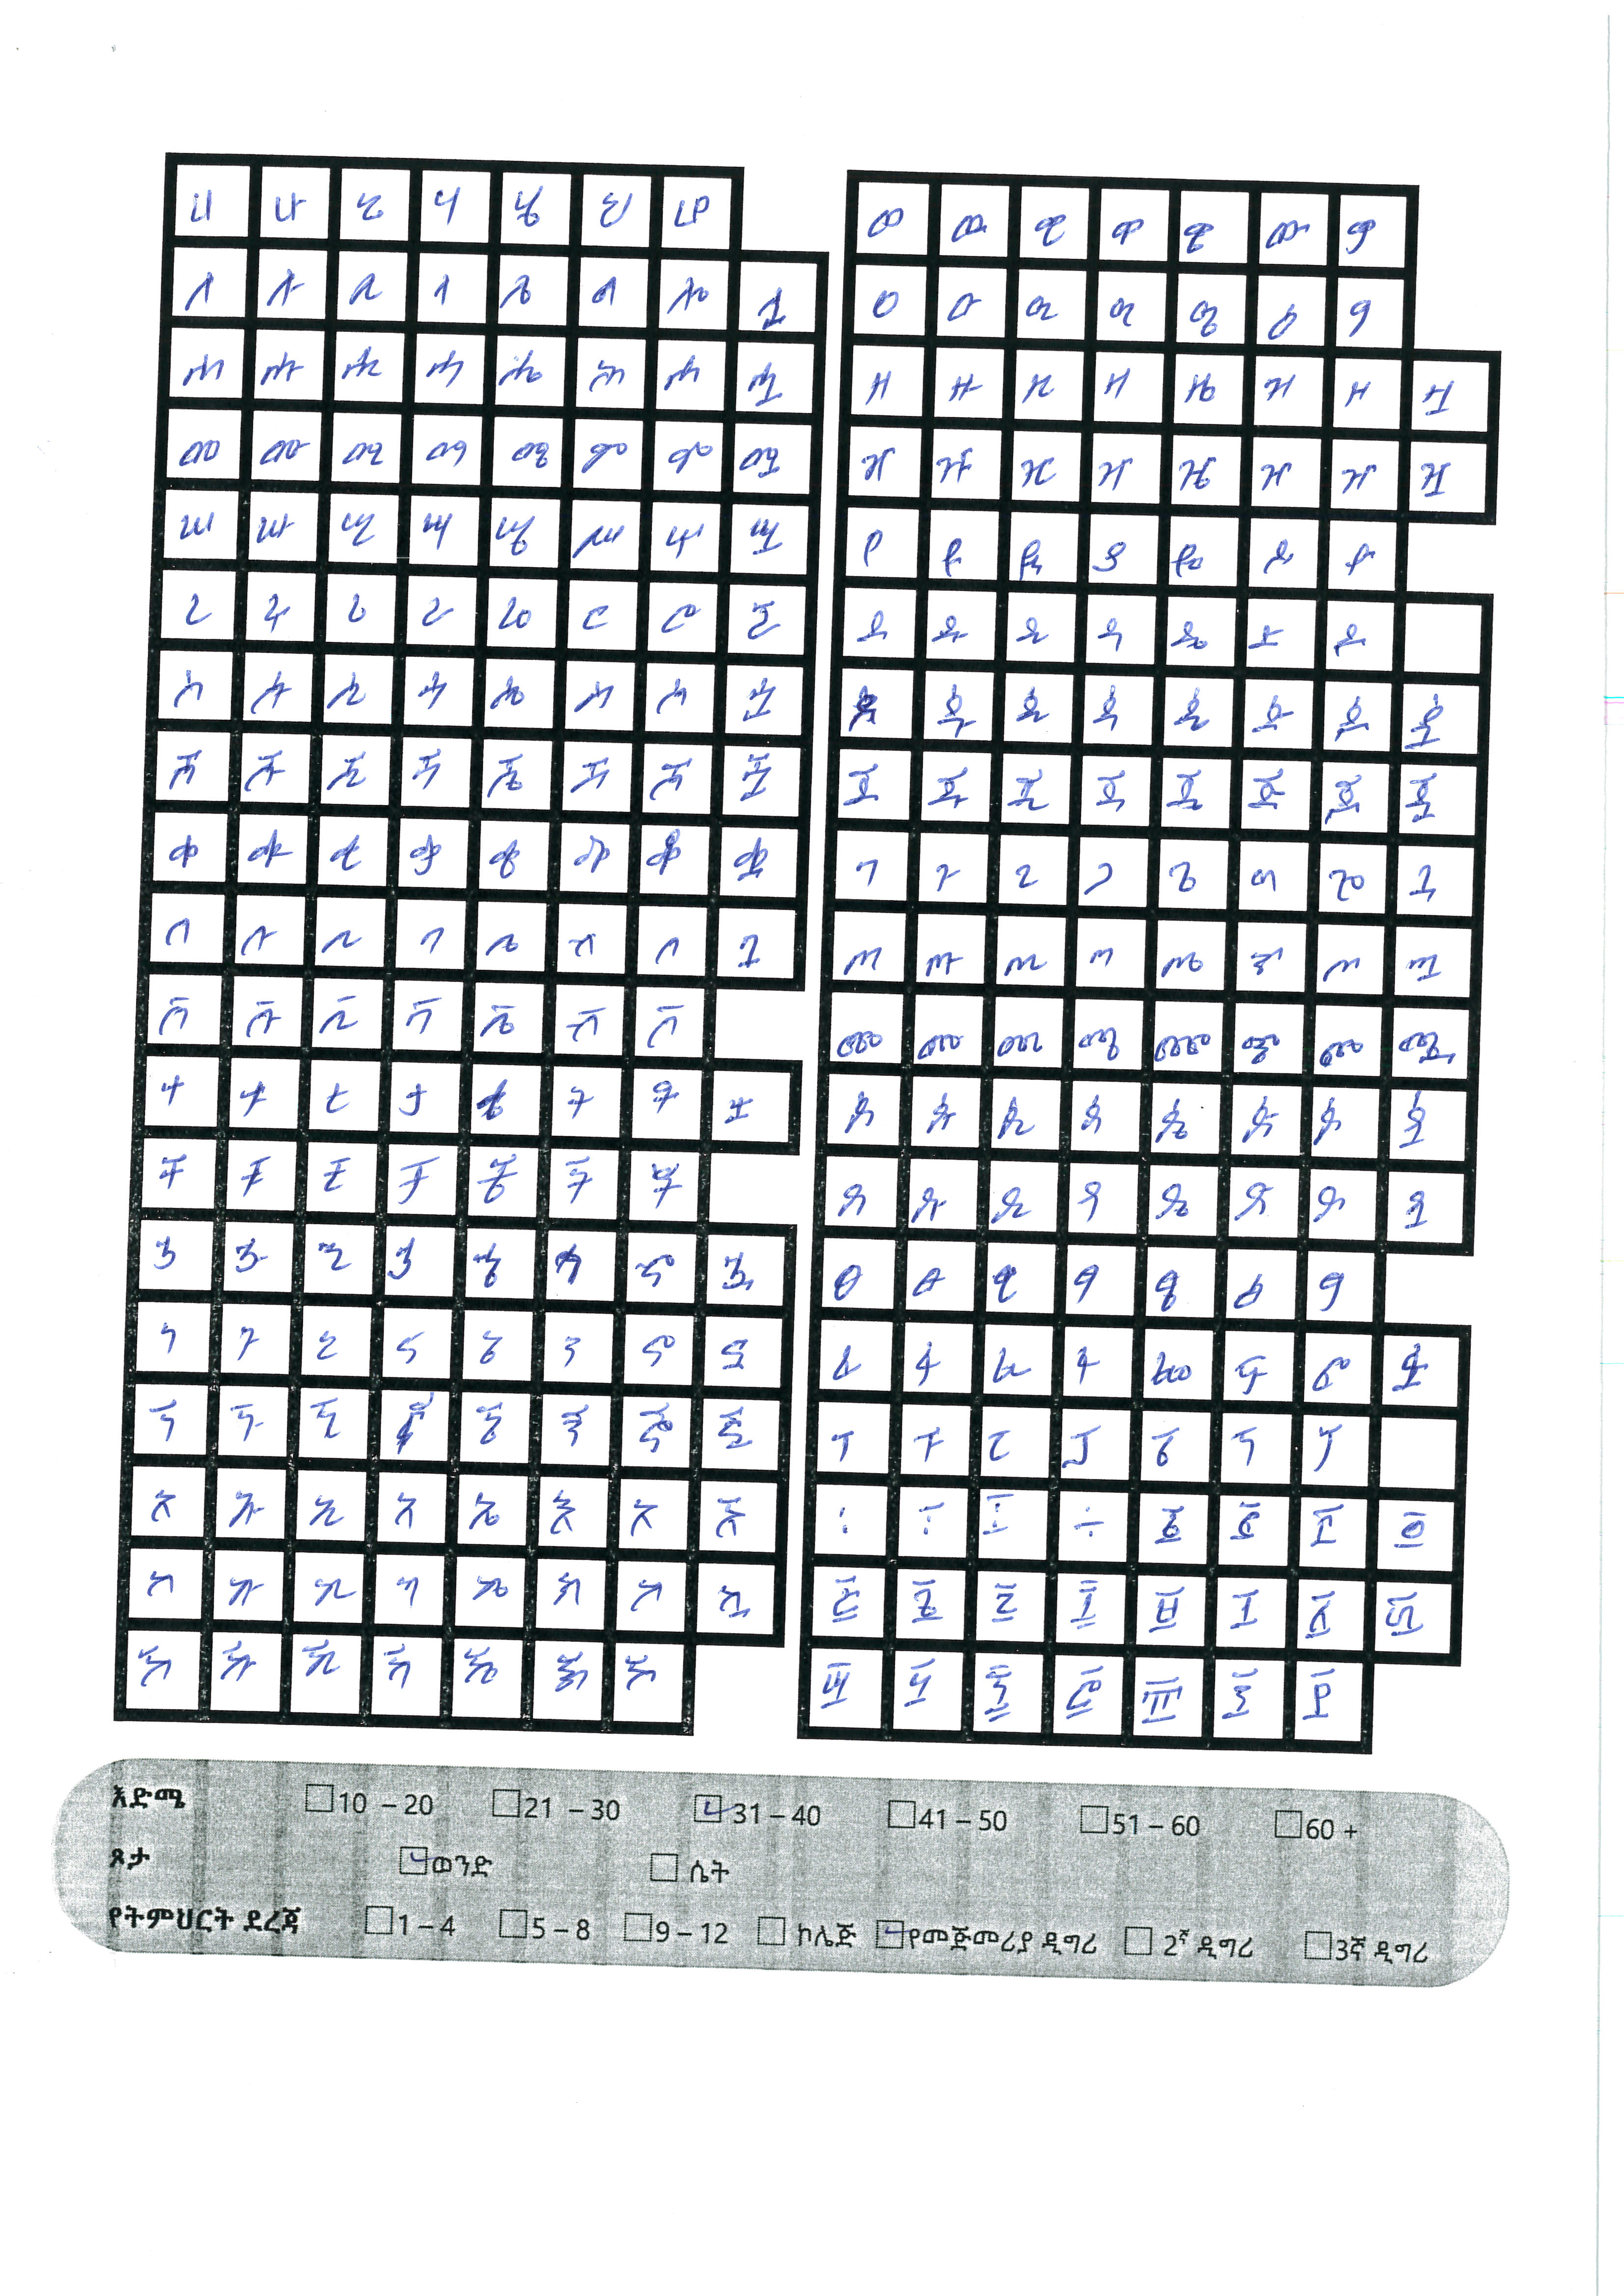 ሀ ሁ ሂ ሃ ሄ ህ ሆ
ለ ሉ ሊ ላ ሌ ል ሎ ሏ
ሐ ሑ ሒ ሓ ሔ ሕ ሖ ሗ
መ ሙ ሚ ማ ሜ ም ሞ ሟ
ሠ ሡ ሢ ሣ ሤ ሥ ሦ ሧ
ረ ሩ ሪ ራ ሬ ር ሮ ሯ
ሰ ሱ ሲ ሳ ሴ ስ ሶ ሷ
ሸ ሹ ሺ ሻ ሼ ሽ ሾ ሿ
ቀ ቁ ቂ ቃ ቄ ቅ ቆ ቋ
በ ቡ ቢ ባ ቤ ብ ቦ ቧ
ቨ ቩ ቪ ቫ ቬ ቭ ቮ
ተ ቱ ቲ ታ ቴ ት ቶ ቷ
ቸ ቹ ቺ ቻ ቼ ች ቾ
ኀ ኁ ኂ ኃ ኄ ኅ ኆ ኋ
ነ ኑ ኒ ና ኔ ን ኖ ኗ
ኘ ኙ ኚ ኛ ኜ ኝ ኞ ኟ
አ ኡ ኢ ኣ ኤ እ ኦ ኧ
ከ ኩ ኪ ካ ኬ ክ ኮ ኳ
ኸ ኹ ኺ ኻ ኼ ኽ ኾ
ወ ዉ ዊ ዋ ዌ ው ዎ
ዐ ዑ ዒ ዓ ዔ ዕ ዖ
ዘ ዙ ዚ ዛ ዜ ዝ ዞ ዟ
ዠ ዡ ዢ ዣ ዤ ዥ ዦ ዧ
የ ዩ ዪ ያ ዬ ይ ዮ
ደ ዱ ዲ ዳ ዴ ድ ዶ
ዸ ዹ ዺ ዻ ዼ ዽ ዾ ዿ
ጀ ጁ ጂ ጃ ጄ ጅ ጆ ጇ
ገ ጉ ጊ ጋ ጌ ግ ጎ ጓ
ጠ ጡ ጢ ጣ ጤ ጥ ጦ ጧ
ጨ ጩ ጪ ጫ ጬ ጭ ጮ ጯ
ጰ ጱ ጲ ጳ ጴ ጵ ጶ ጷ
ጸ ጹ ጺ ጻ ጼ ጽ ጾ ጿ
ፀ ፁ ፂ ፃ ፄ ፅ ፆ
ፈ ፉ ፊ ፋ ፌ ፍ ፎ ፏ
ፐ ፑ ፒ ፓ ፔ ፕ ፖ
፡ ፥ ፤ ÷
፩ ፪ ፫ ፬ ፭ ፮ ፯ ፰ ፱ ፲ ፳ ፴
፵ ፶ ፷ ፸ ፹ ፺ ፻
እድሜ 10 – 20 21 – 30 31 – 40 41 – 50 51 – 60 60 +
ጾታ ወንድ ሴት
የትምህርት ደረጃ 1 – 4 5 – 8 9 – 12 ኮሌጅ የመጀመሪያ ዲግሪ 2ኛ ዲግሪ 3ኛ ዲግሪ